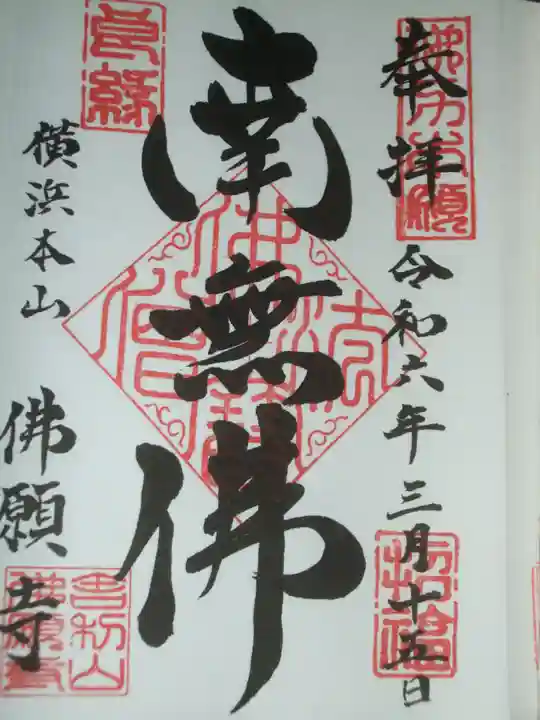 奉拝
令和六年三月十五日
南無佛
良縁
横浜本山
佛願寺
招福